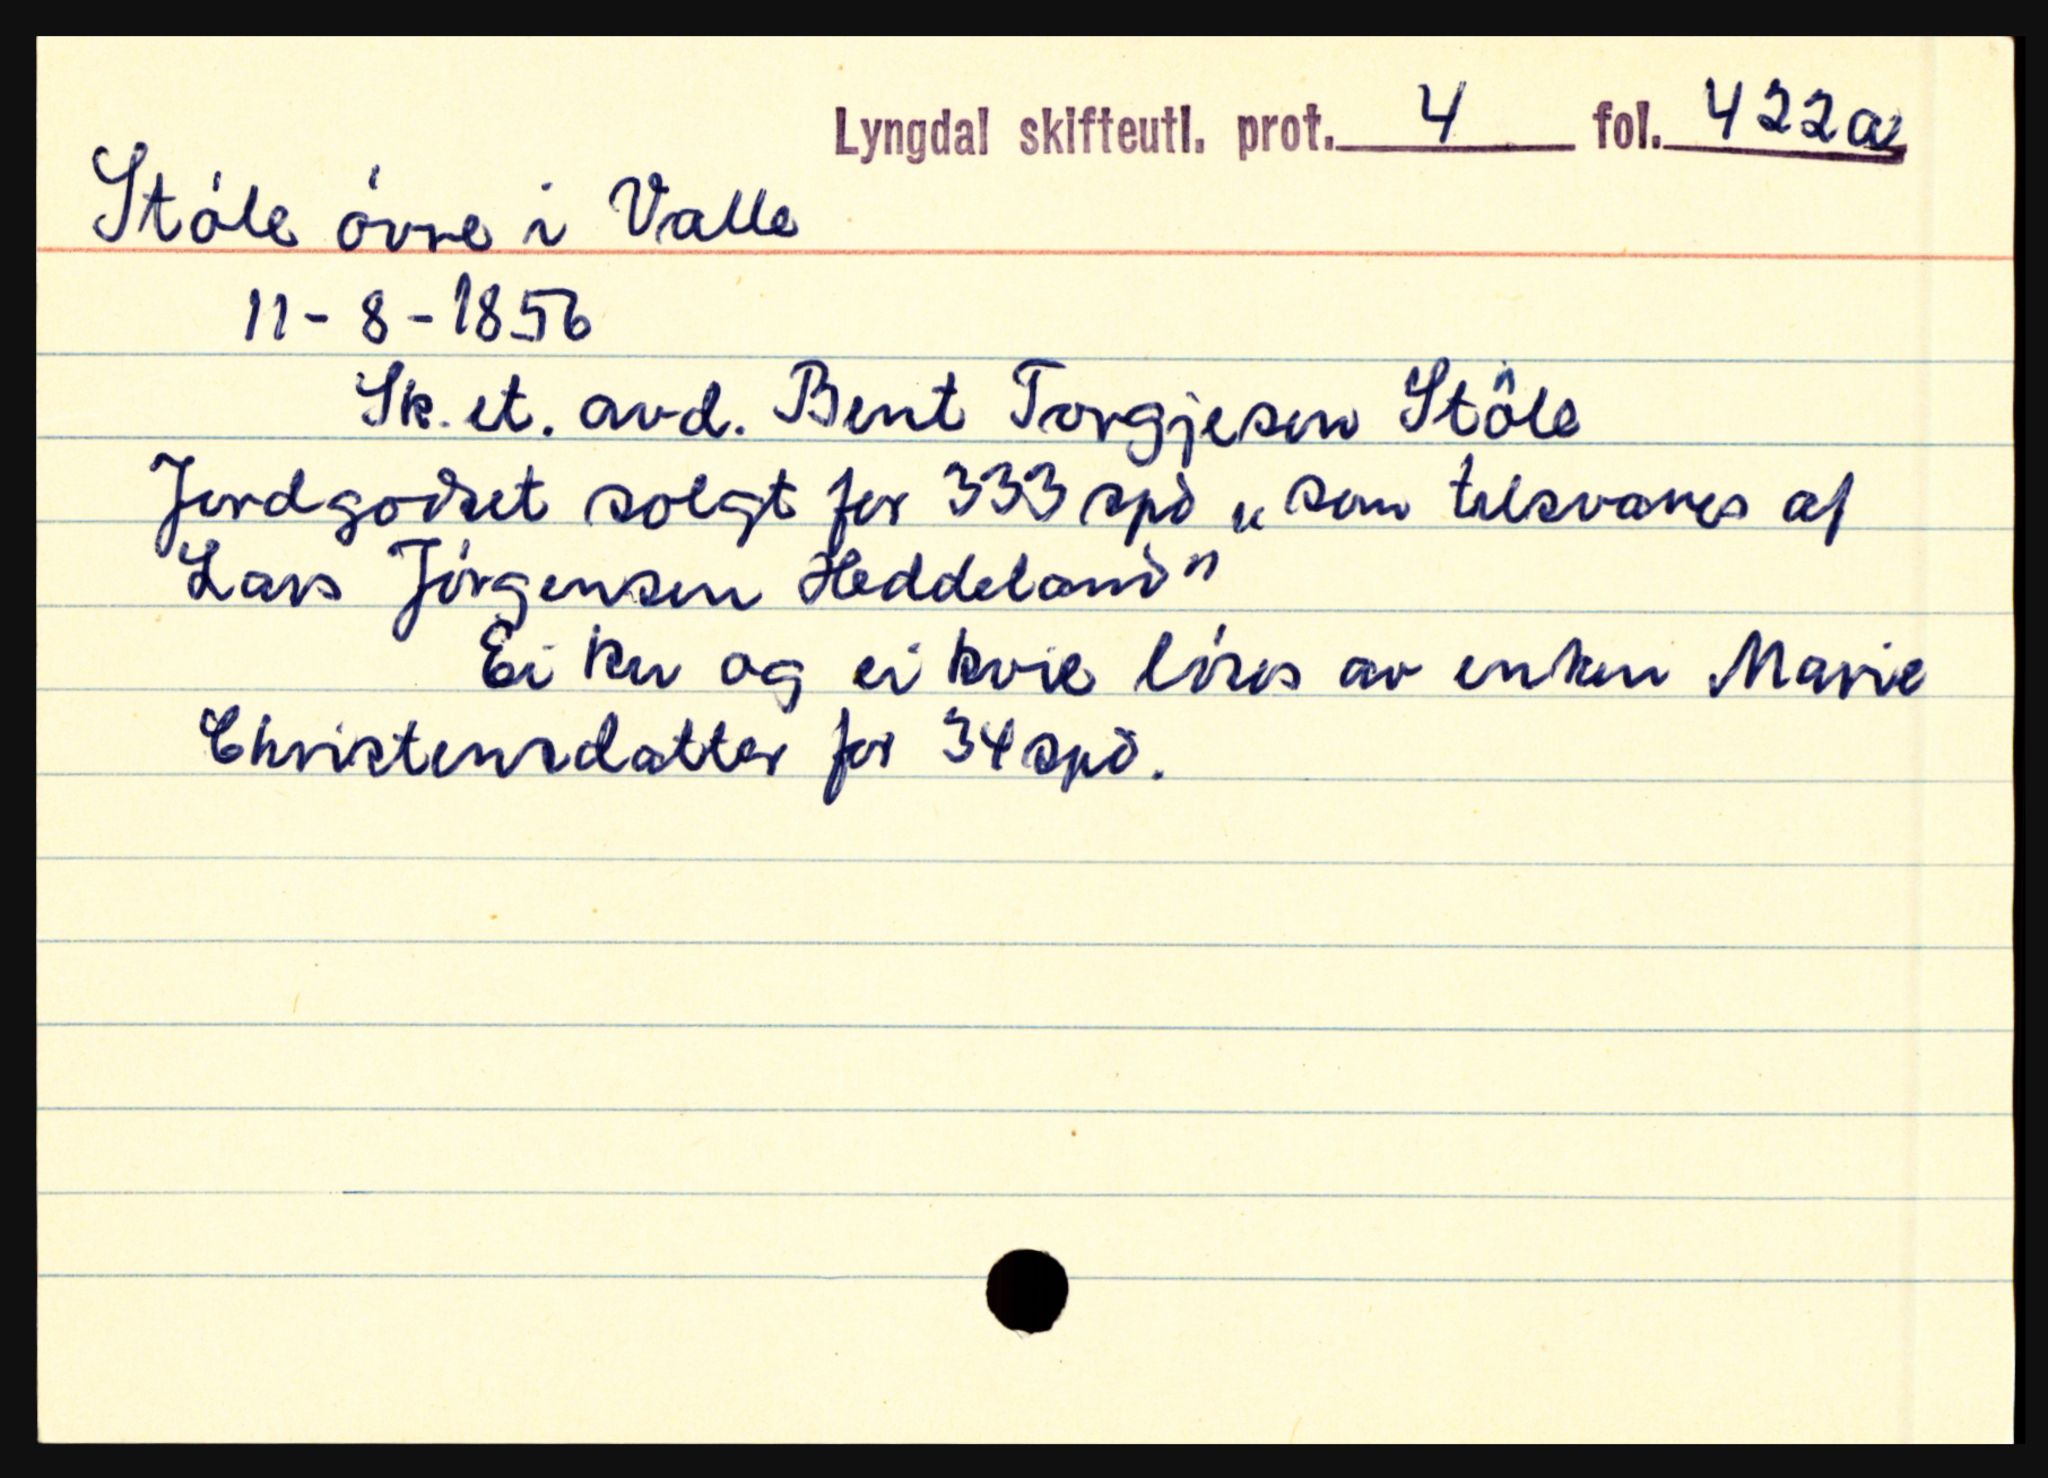 Lyngdal skifteutl. prot. 4 fol. 422a
Støle øvre i Valle
11-8-1856
Sk. et. avd. Bent Torgjesen Støle
Jordgodset solgt for 333 spd „som tilsvares af
Lars Jørgensen Heddeland"
Ei ku og ei kvie løses av enken Marie
Christensdatter for 34 spd.